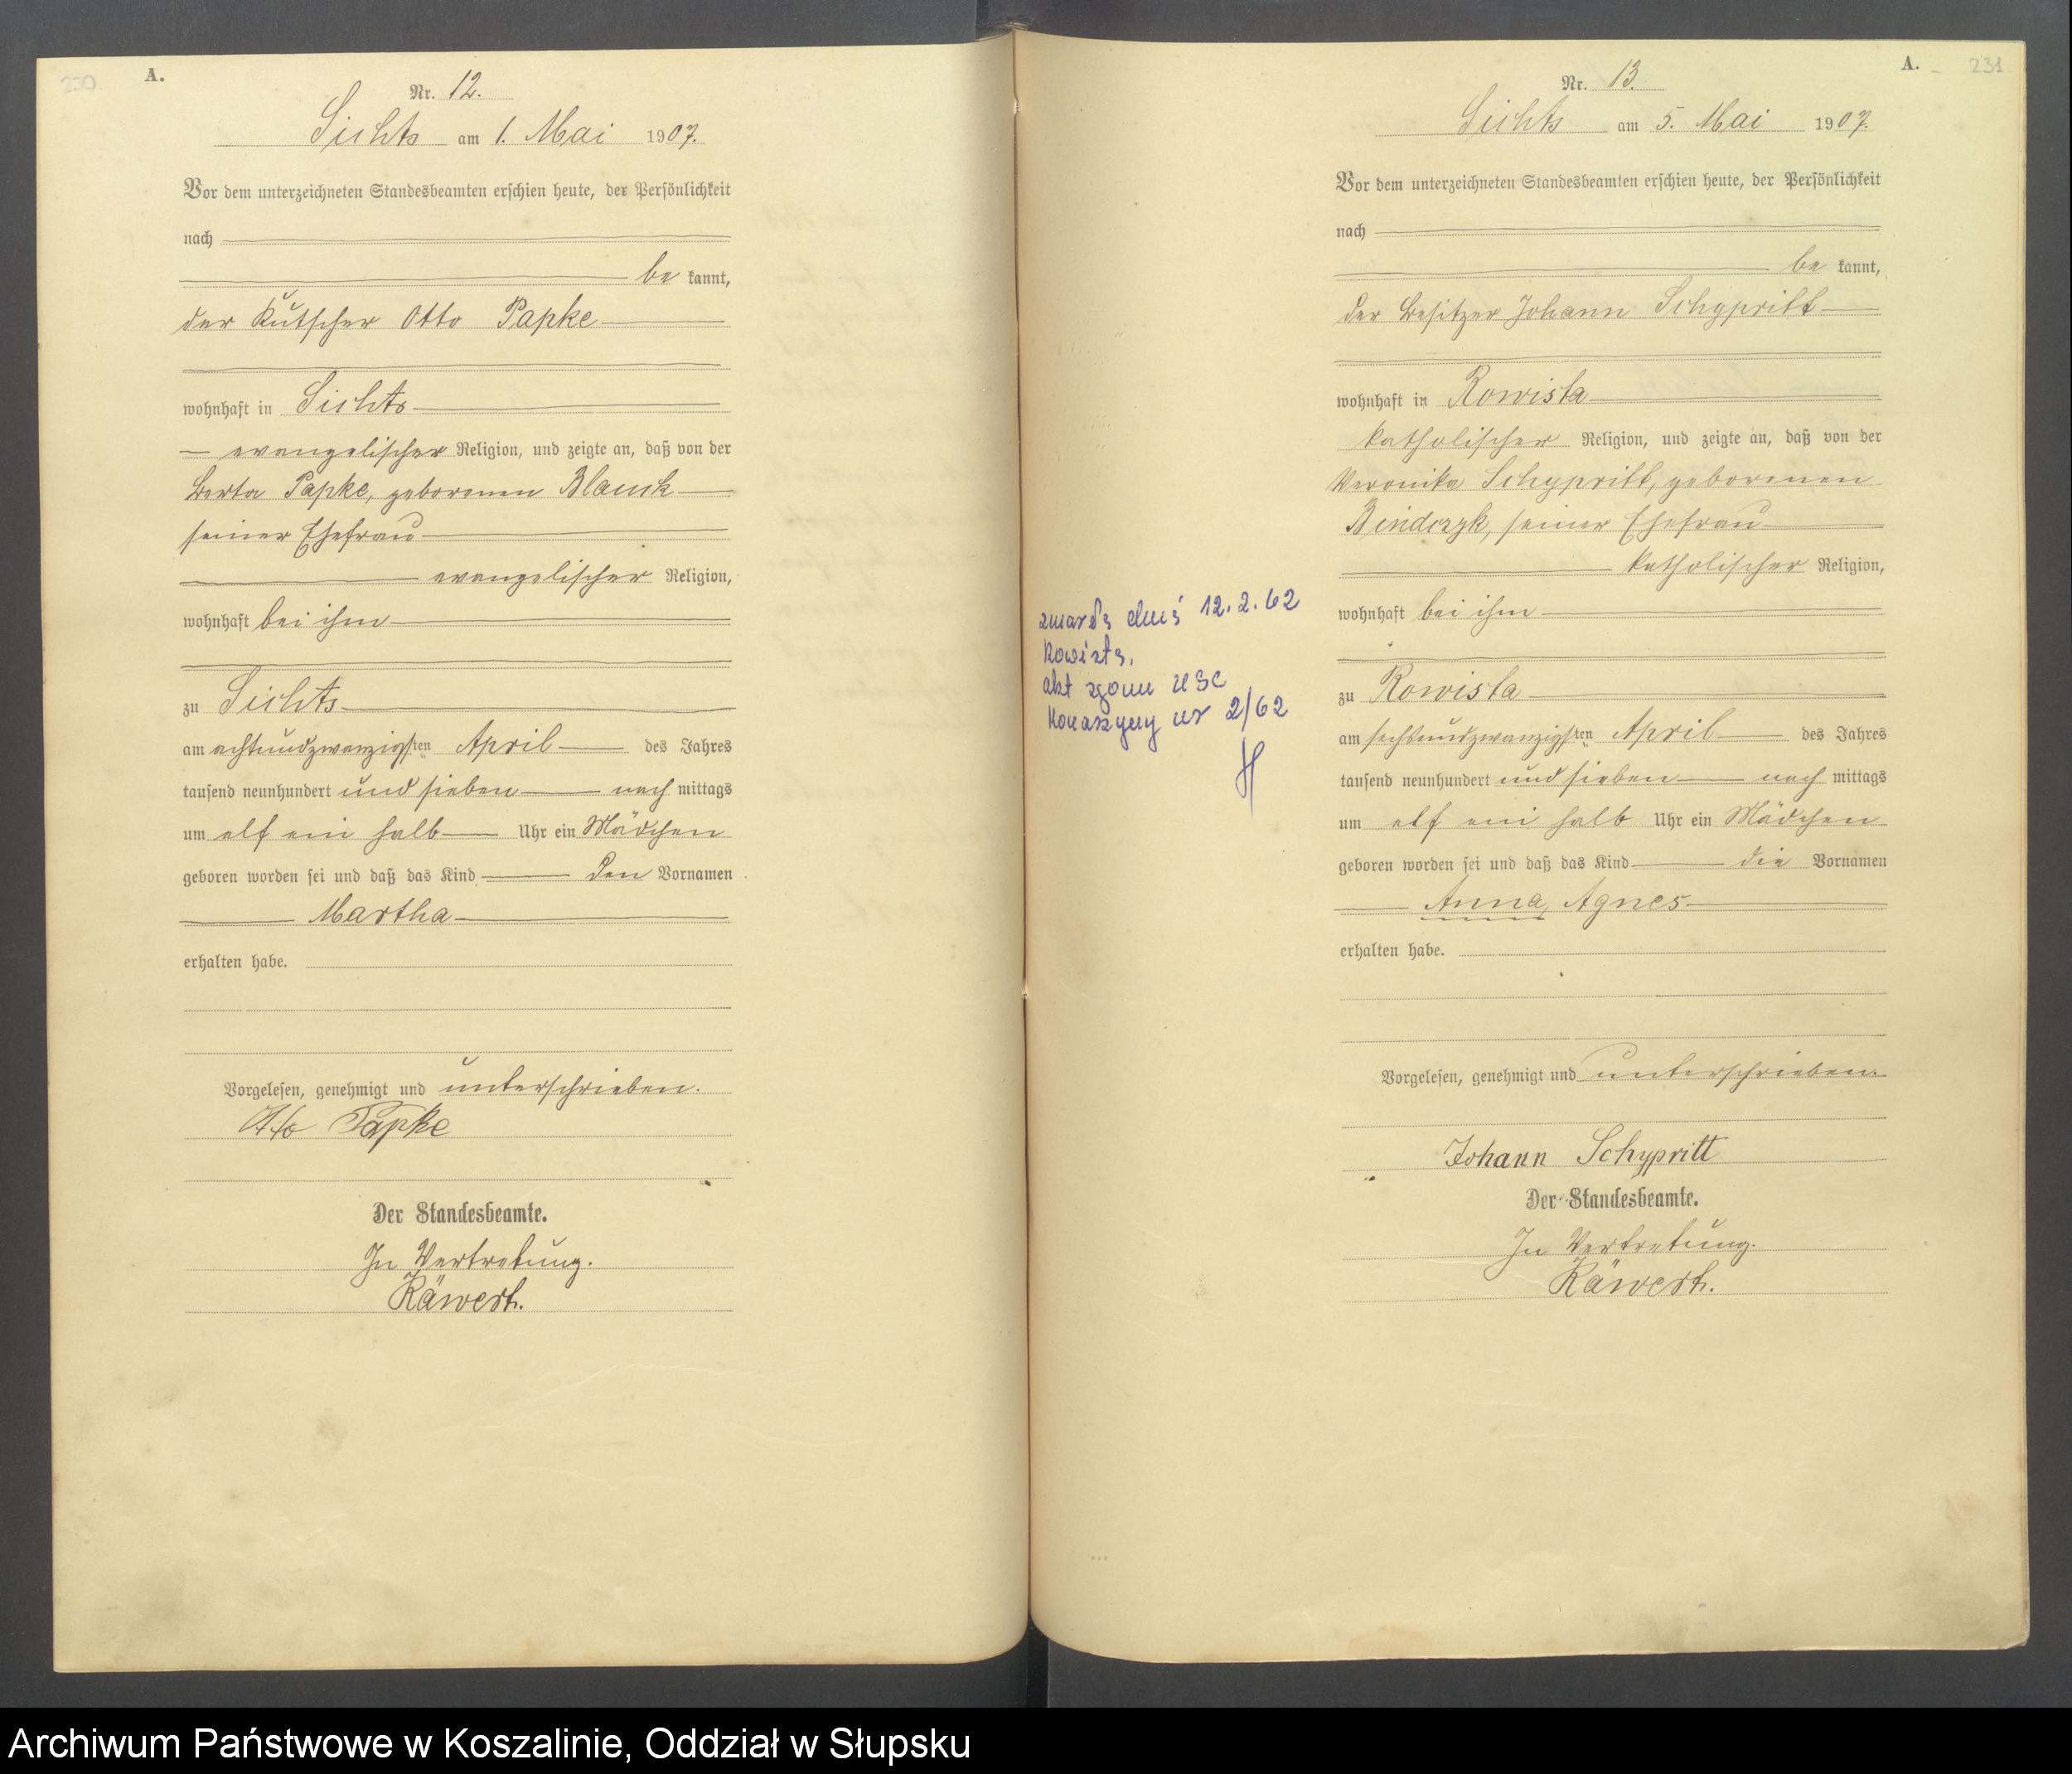 230
A.
Nr. 12.
Sichts am 1. Mai 1907.
Vor dem unterzeichneten Standesbeamten erschien heute, der Persönlichkeit
nach
be kannt,
der Kutscher Otto Papke
wohnhaft in Sichts
evangelischer Religion, und zeigte an, daß von der
Berta Papke, geborenen Blanck
seiner Ehefrau
evangelischer Religion,
wohnhaft bei ihm
zu Sichts
am achtundzwanzigsten April des Jahres
tausend neunhundert und sieben nach mittags
um elf ein halb Uhr ein Mädchen
geboren worden sei und daß das Kind den Vornamen
Martha
erhalten habe.
Vorgelesen, genehmigt und unterschrieben.
Otto Papke
Der Standesbeamte.
In Vertretung.
Räwert.
A. 231
Nr. 13.
Sichts am 5. Mai 1907.
Vor dem unterzeichneten Standesbeamten erschien heute, der Persönlichkeit
nach
be kannt,
der Besitzer Johann Schypritt
wohnhaft in Rowista
katholischer Religion, und zeigte an, daß von der
Veronika Schypritt, geborenen
Bindczyk, seiner Ehefrau
katholischer Religion,
wohnhaft bei ihm
zu Rowista
am sechsundzwanzigsten April des Jahres
tausend neunhundert und sieben nach mittags
um elf ein halb Uhr ein Mädchen
geboren worden sei und daß das Kind die Vornamen
Anna, Agnes
erhalten habe.
Vorgelesen, genehmigt und unterschrieben.
Johann Schypritt
Der Standesbeamte.
In Vertretung.
Räwert.
zmarła dnia 12.2.62
Rowista,
akt zgonu USC
Konarzyny nr 2/62
Archiwum Państwowe w Koszalinie, Oddział w Słupsku